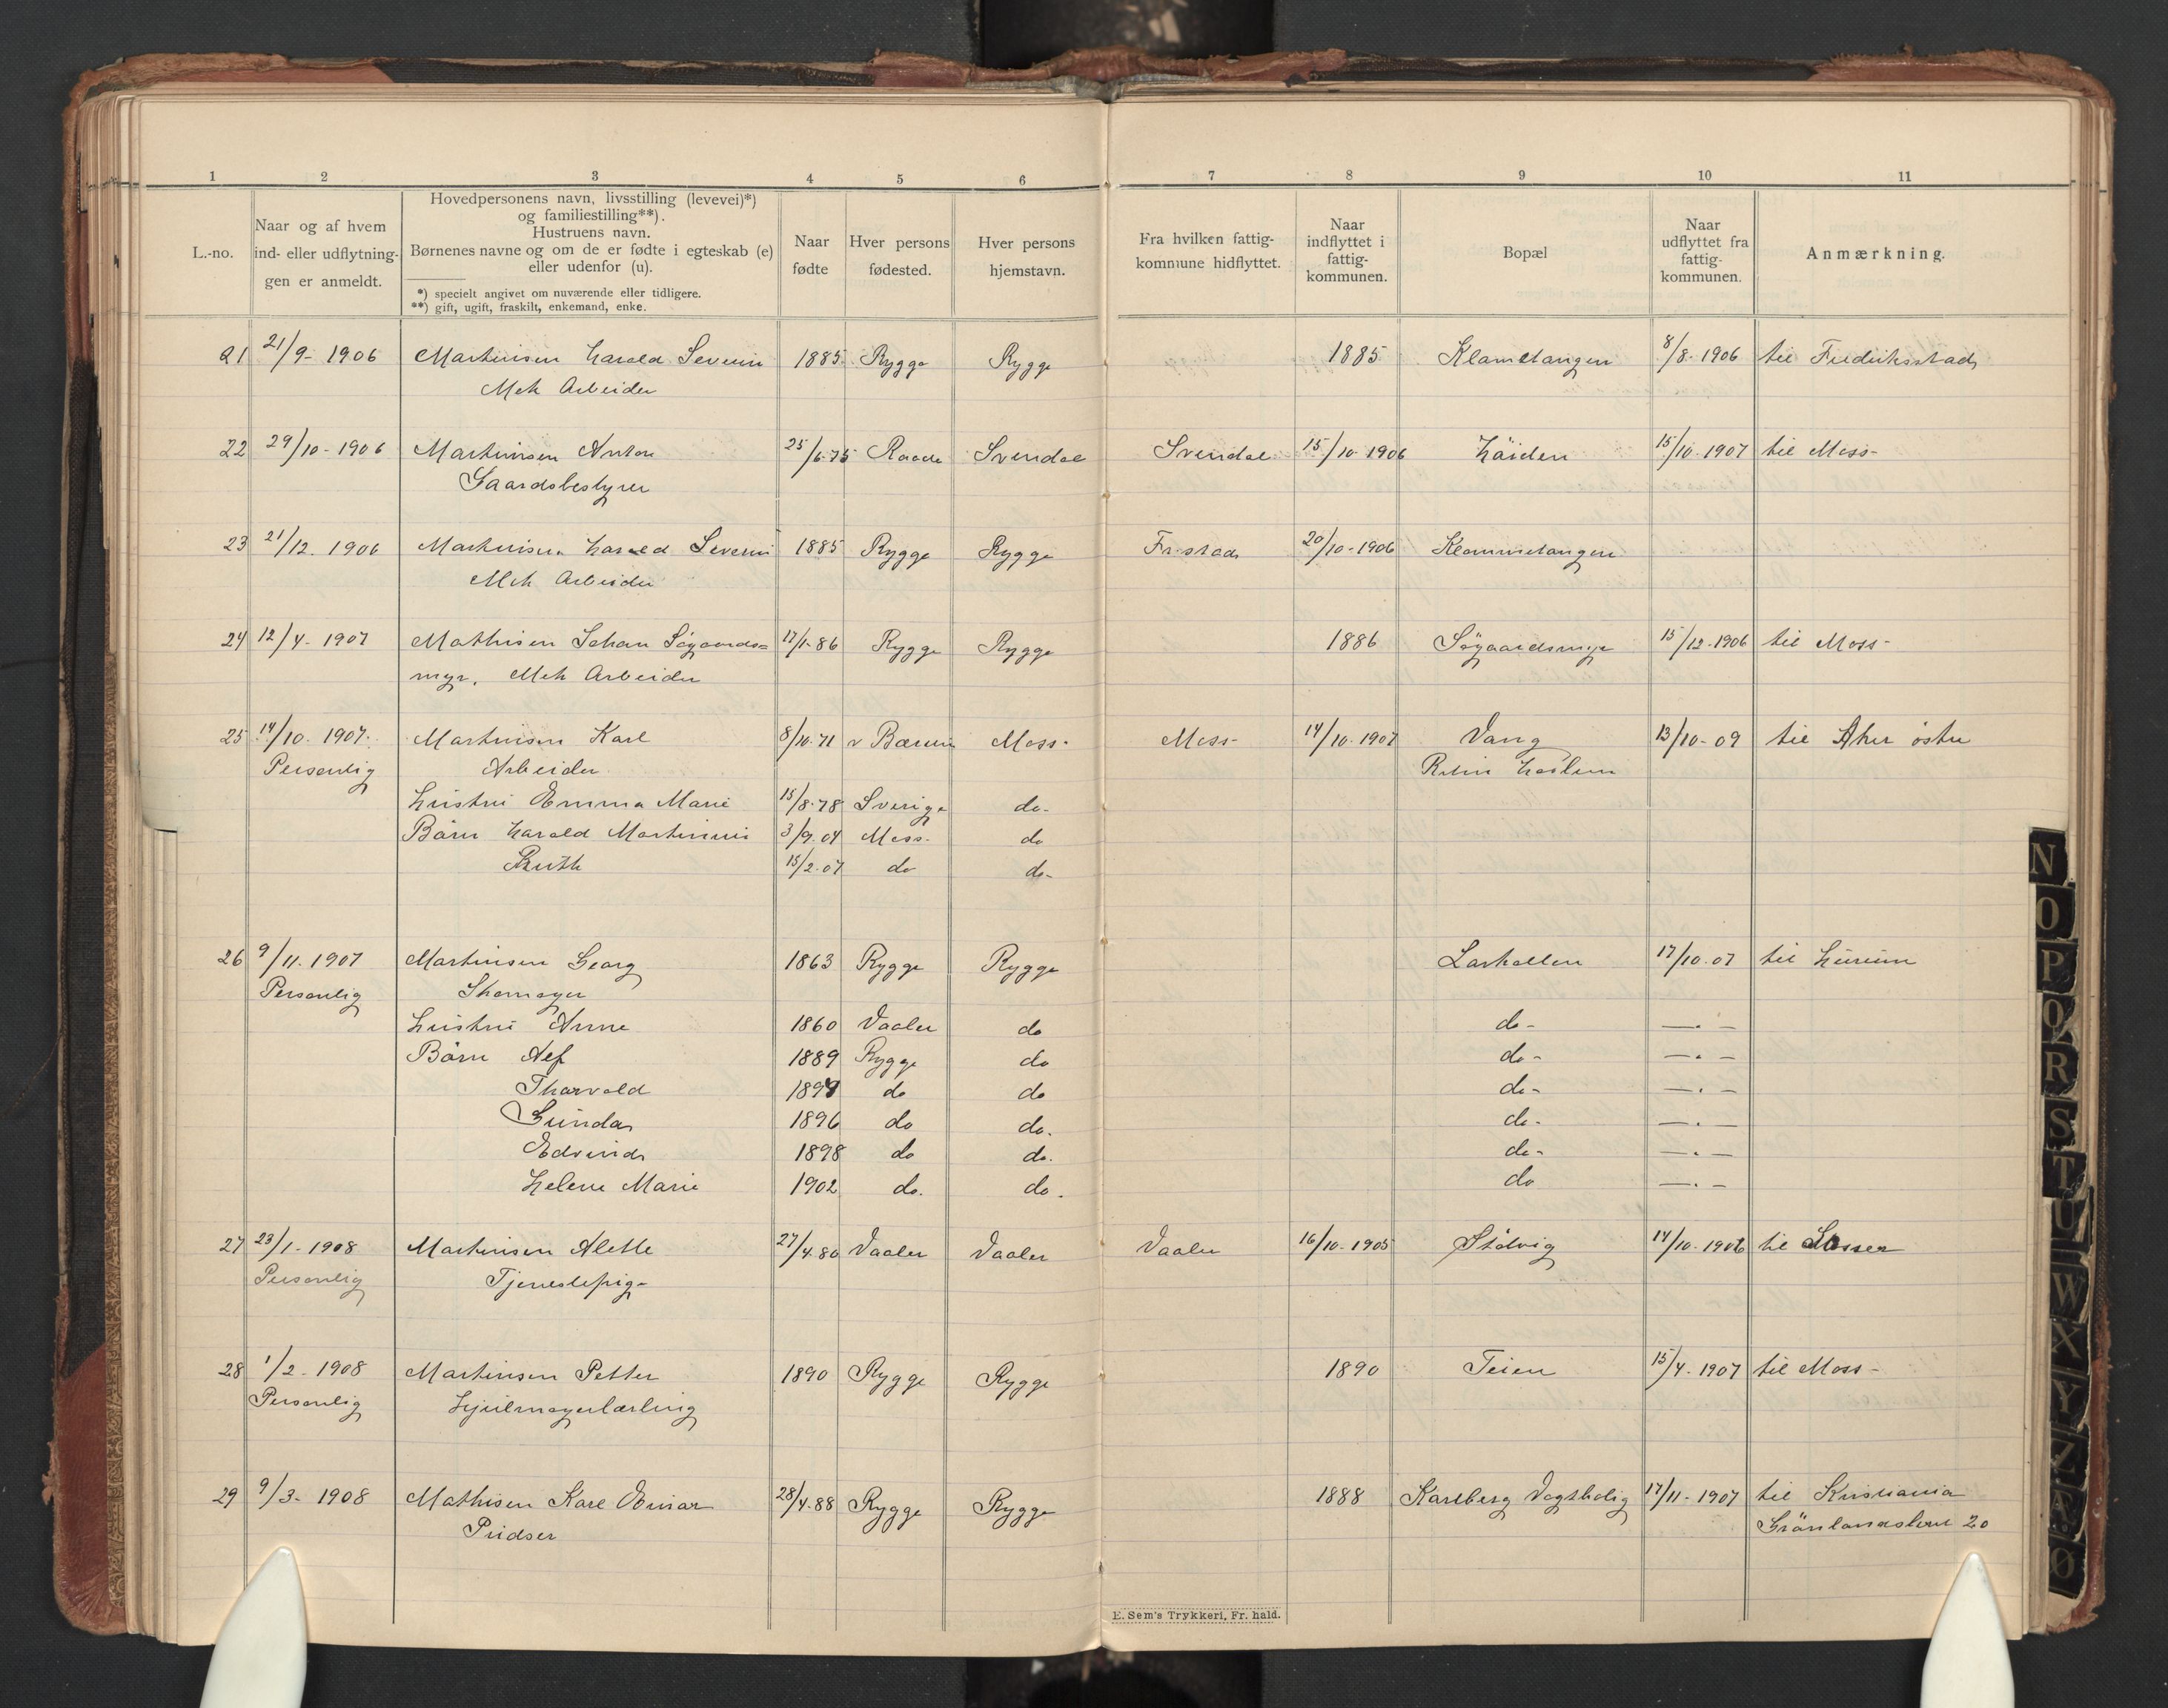 1 2 3 4 5 6 7 8 9 10 11
L.-no.
Naar og af hvem
ind- eller udflytnin-
gen er anmeldt.
Hovedpersonens navn, livsstilling (levevei)*)
og familiestilling**).
Hustruens navn.
Børnenes navne og om de er fødte i egteskab (e)
eller udenfor (u).
*) specielt angivet om nuværende eller tidligere.
**) gift, ugift, fraskilt, enkemand, enke.
Naar
fødte
Hver persons
fødested.
Hver persons
hjemstavn.
Fra hvilken fattig-
kommune hidflyttet.
Naar
indflyttet i
fattig-
kommunen.
Bopæl
Naar
udflyttet fra
fattig-
kommunen.
Anmærkning.
21 21/9- 1906 Martinsen Harald Severin 1885 Rygge Rygge 1885 Klametangen 8/8- 1906 til Fredriksstad
Mek Arbeider
22 29/10- 1906 Martinsen Anton 25/6-75 Raade Svendal Svendal 15/10-1906 Höiden 15/10-1907 til Moss-
Gaardsbestyrer
23 21/12. 1906 Martinsen Harald Severin 1885 Rygge Rygge Fr.stad 20/10-1906 Klammetangen
Mek Arbeider
24 12/4- 1907 Mathisen Johan Søgaards= 17/1-86 Rygge Rygge 1886 Søgaardsmyr 15/12-1906 til Moss-
myr. Mek Arbeider
25 14/10. 1907. Martinsen Karl 8/10-71 v Bærum Moss- Moss- 14/10-1907 Vang 13/10-09 til Aker östre
Personlig Arbeider
Hustru Emma Marie 15/8-78 Sverige do-
Börn Harald Martinius 3/9.04 Moss- do
Ruth 15/2-07 do do-
26 9/11. 1907 Martinsen Georg 1863 Rygge Rygge Larkollen 17/10-07 til Hurum
Personlig Skomager
Hustru Anne 1860 Vaaler do do- —.—
Börn Alf 1889 Rygge do do- —.—
Thorvald 1894 do do do- —.—
Gunda 1896 do do. do- —.—
Edvind 1898 do do. do- —.—
Helene Marie 1902 do. do. do —.—
27 23/1- 1908 Martinsen Alette 27/4-80 Vaaler Vaaler Vaaler 16/10-1905 Stödvig 14/10-1906 til
Personlig Tjenestepige
28 1/2- 1908 Martinsen Petter 1890 Rygge Rygge 1890 Teien 15/4-1907 til Moss-
Personlig Hjulmagerlærling
29 9/3- 1908 Mathisen Karl Einar 28/4-88 Rygge Rygge 1888 Karlberg Vogtbolig 17/11-1907 til Kristiania
Pudser Grönlandsleret 20
E. Sem's Trykkeri, Fr. hald.
N
O
P
Q
R
S
T
U
W
X
Y
Z
Ø